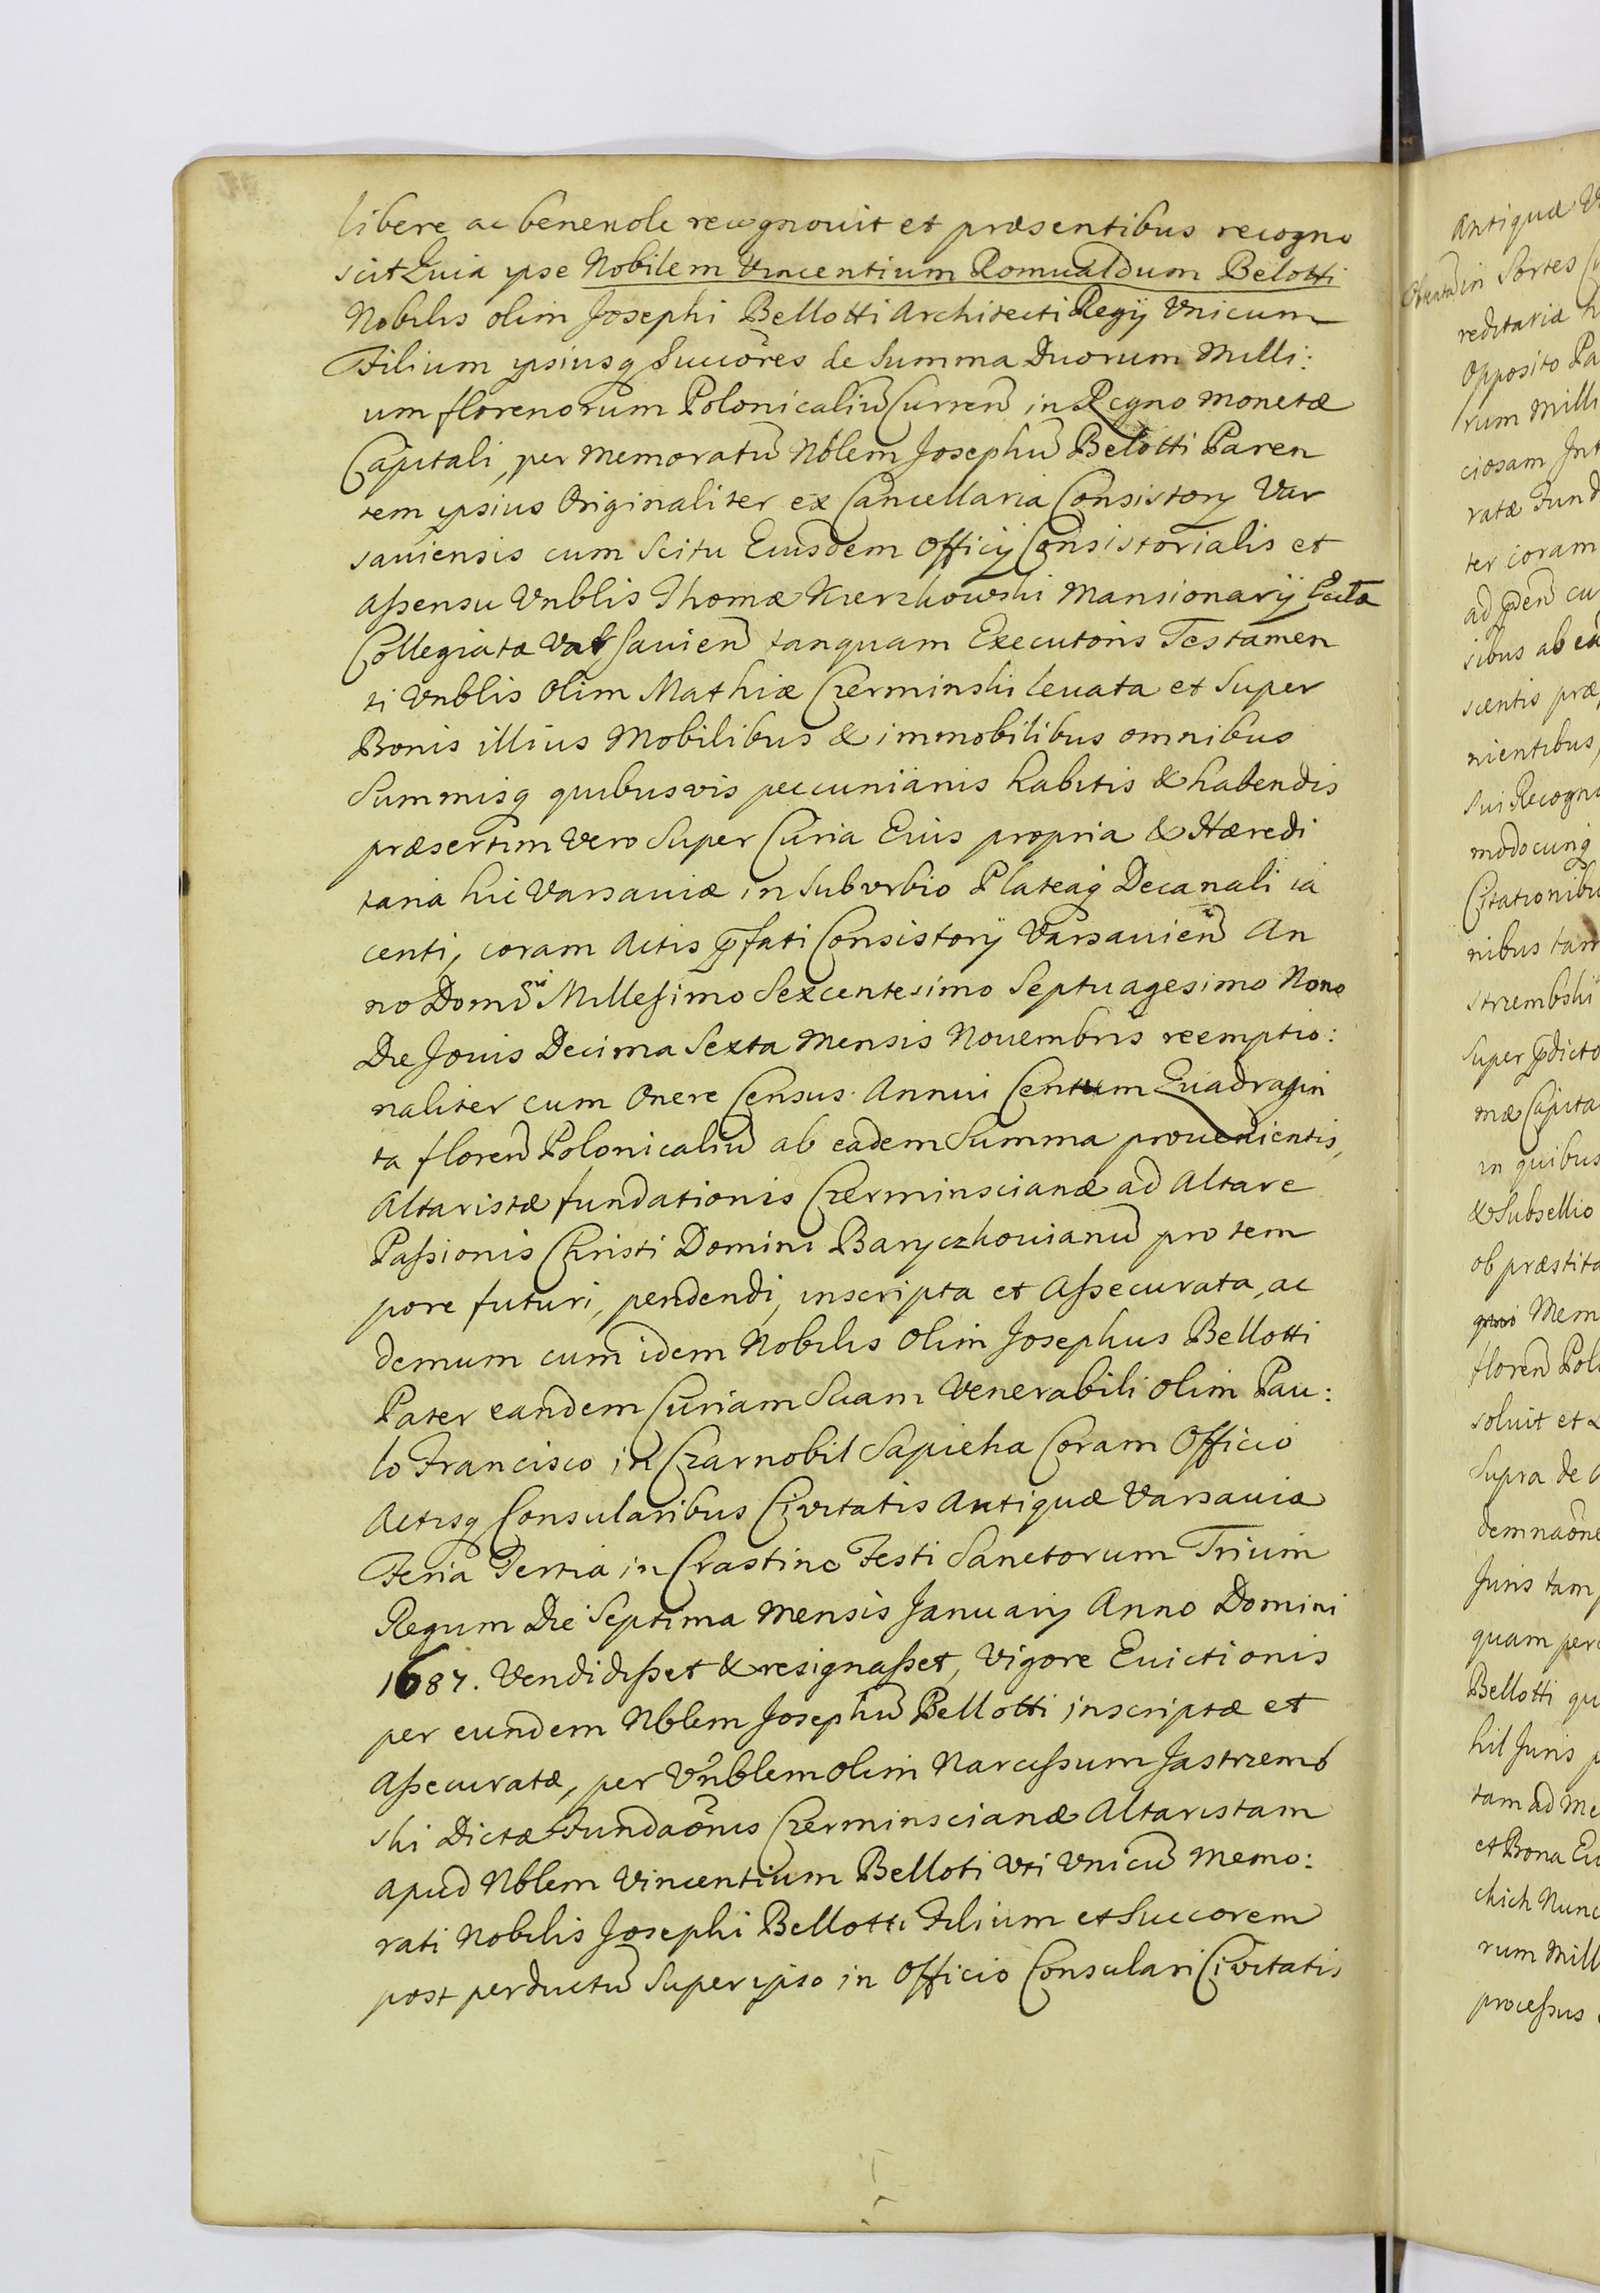 libere ac beneuole recognouit et præsentibus recogno
scit Quia ipse Nobilem Vincentium Romualdum Belotti
Nobilis olim Josephi Bellotti Architecti Regij Vnicum
Filium ipsiusq Succõres de Summa Duorum Milli:
um florenorum Polonicaliũ Curreñ in Regno monetæ
Capitali, per memoratũ Nblem Josephũ Belotti Paren
tem ipsius Originaliter ex Cancellaria Consistorij Var
sauiensis cum scitu Eiusdem Officij Consistorialis et
Assensu Vnblis Thomæ Mansionarij
Collegiatæ Varsauieñ tanquam Executoris Testamen
ti Vnblis olim Mathiæ Czerminski leuata et Super
Bonis illius Mobilibus & immobilibus omnibus
Summisq quibusvis peccuniarijs habitis & habendis
præsertim vero Super Curia Eius propria & Hæredi
taria hic Varsauiæ in Suburbio Plateaq Decanali ia
centi, coram Actis p̃fati Consistorij Varsauieñ An
no Domĩni Millesimo Sexcentesimo Septuagesimo Nono
Die Jouis Decima Sexta Mensis Nouembris reemptio:
naliter cum Onere Census Annui Centum Quadragin
ta floreñ Polonicaliũ ab eadem Summa prouenientis,
Altaristæ fundationis Czerminscianæ ad Altare
Passionis Christi Domini Baryczkouianũ pro tem
pore futuri, pendendi, inscripta et Assecurata, ac
demum cum idem Nobilis olim Josephus Bellotti
Pater eandem Curiam Suam Venerabili olim Pau:
lo Francisco in Czarnobil Sapieha Coram Officio
Actisq Consularibus Ciuitatis Antiquæ Varsauiæ
Feria Tertia in Crastino Festi Sanctorum Trium
Regum Die Septima Mensis Januarij Anno Domini
1687. Vendidisset & resignasset, Vigore Euictionis
per eundem Nblem Josephũ Bellotti inscriptæ et
Assecuratæ, per Vñblem olim Narcissum Jastrzemb
ski Dictæ Fundaõnis Czerminscianæ Altaristam
apud Nblem Vincentium Belloti Vti Vnicũ Memo:
rati Nobilis Josephi Bellotti Filium et Succorem
post perductũ Super ipso in Officio Consulari Ciuitatis
Antiquæ
in Sortes
reditariæ
Opposito Pa
rum Milli
ciosam Int
ratæ Fund
ter coram
sibus ab ea
scentis præ
nientibus,
Sui Recogno
modocunq
Citationibu
nibus tam
strzembski
Super p̃dicto
mæ Capita
in quibus
& Subsellio
ob præstita
Mem
floreñ Pol
soluit et
Supra de
demnaõne
Juris tam
quam per
Bellotti qu
hil Juris
tam ad Me
et Bona Eu
chich Nunc
rum Mill
processus